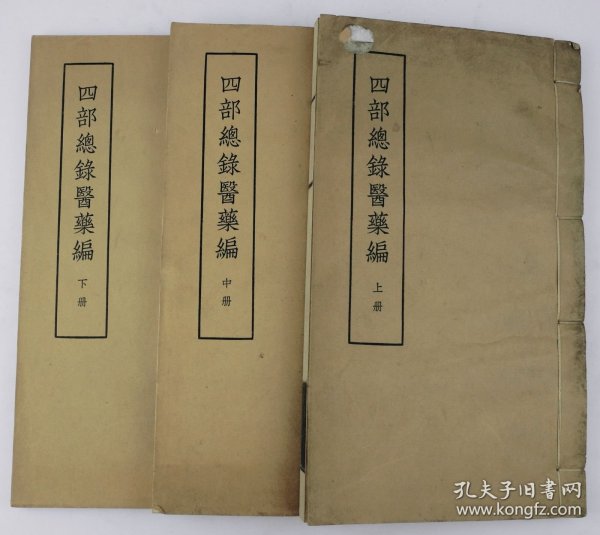 四部總錄醫藥編
上册
四部總錄醫藥編
中册
四部總錄醫藥編
下册
孔夫子旧書网
www.kongfz.com